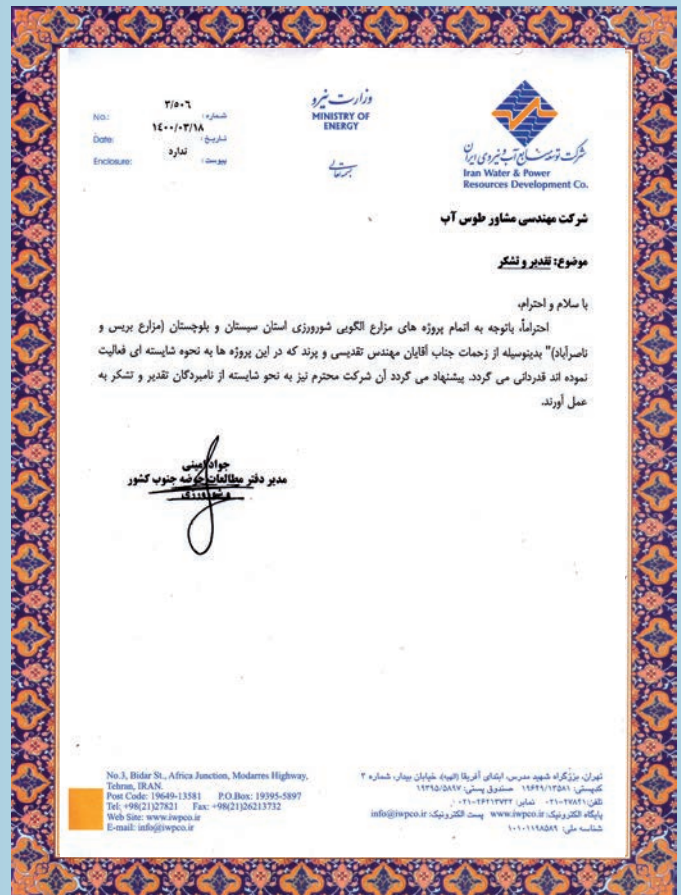 No.:
۳/۵۰٦
شماره :
Date:
۱٤۰۰/۰۳/۱۸
تاریخ :
Enclosure:
ندارد
پیوست :
وزارت نیرو
MINISTRY OF
ENERGY
بسمه‌تعالی
شرکت توسعه منابع آب و نیروی ایران
Iran Water & Power
Resources Development Co.
شرکت مهندسی مشاور طوس آب
موضوع: تقدیر و تشکر
با سلام و احترام،
احتراماً، باتوجه به اتمام پروژه های مزارع الگویی شورورزی استان سیستان و بلوچستان (مزارع بریس و
ناصرآباد)" بدینوسیله از زحمات جناب آقایان مهندس تقدیسی و پرند که در این پروژه ها به نحوه شایسته ای فعالیت
نموده اند قدردانی می گردد. پیشنهاد می گردد آن شرکت محترم نیز به نحو شایسته از نامبردگان تقدیر و تشکر به
عمل آورند.
جواد امینی
مدیر دفتر مطالعات حوضه جنوب کشور
و شورورزی
No.3, Bidar St., Africa Junction, Modarres Highway,
Tehran, IRAN.
Post Code: 19649-13581 P.O.Box: 19395-5897
Tel: +98(21)27821 Fax: +98(21)26213732
Web Site: www.iwpco.ir
E-mail: info@iwpco.ir
تهران، بزرگراه شهید مدرس، ابتدای آفریقا (الهیه)، خیابان بیدار، شماره ۳
کدپستی: ۱۹۶۴۹/۱۳۵۸۱ صندوق پستی: ۱۹۳۹۵/۵۸۹۷
تلفن: ۲۷۸۲۱-۰۲۱ نمابر: ۲۶۲۱۳۷۳۲-۰۲۱
پایگاه الکترونیک: www.iwpco.ir پست الکترونیک: info@iwpco.ir
شناسه ملی: ۱۰۱۰۱۱۹۸۵۸۹